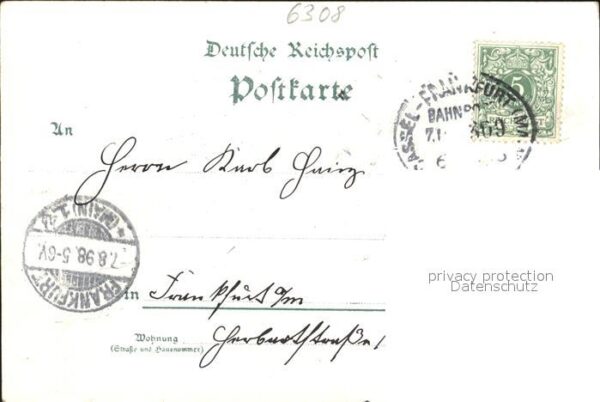 6308
Deutsche Reichspost
Postkarte
An
Herrn Karl Hainz
CASSEL-FRANKFURT (MAIN)
BAHNPOST
5
FRANKFURT
7.8.98.5-6V.
(MAIN) 1.
privacy protection
Datenschutz
in Frankfurt a/m
Wohnung
(Straße und Hausnummer)
Herbartstraße